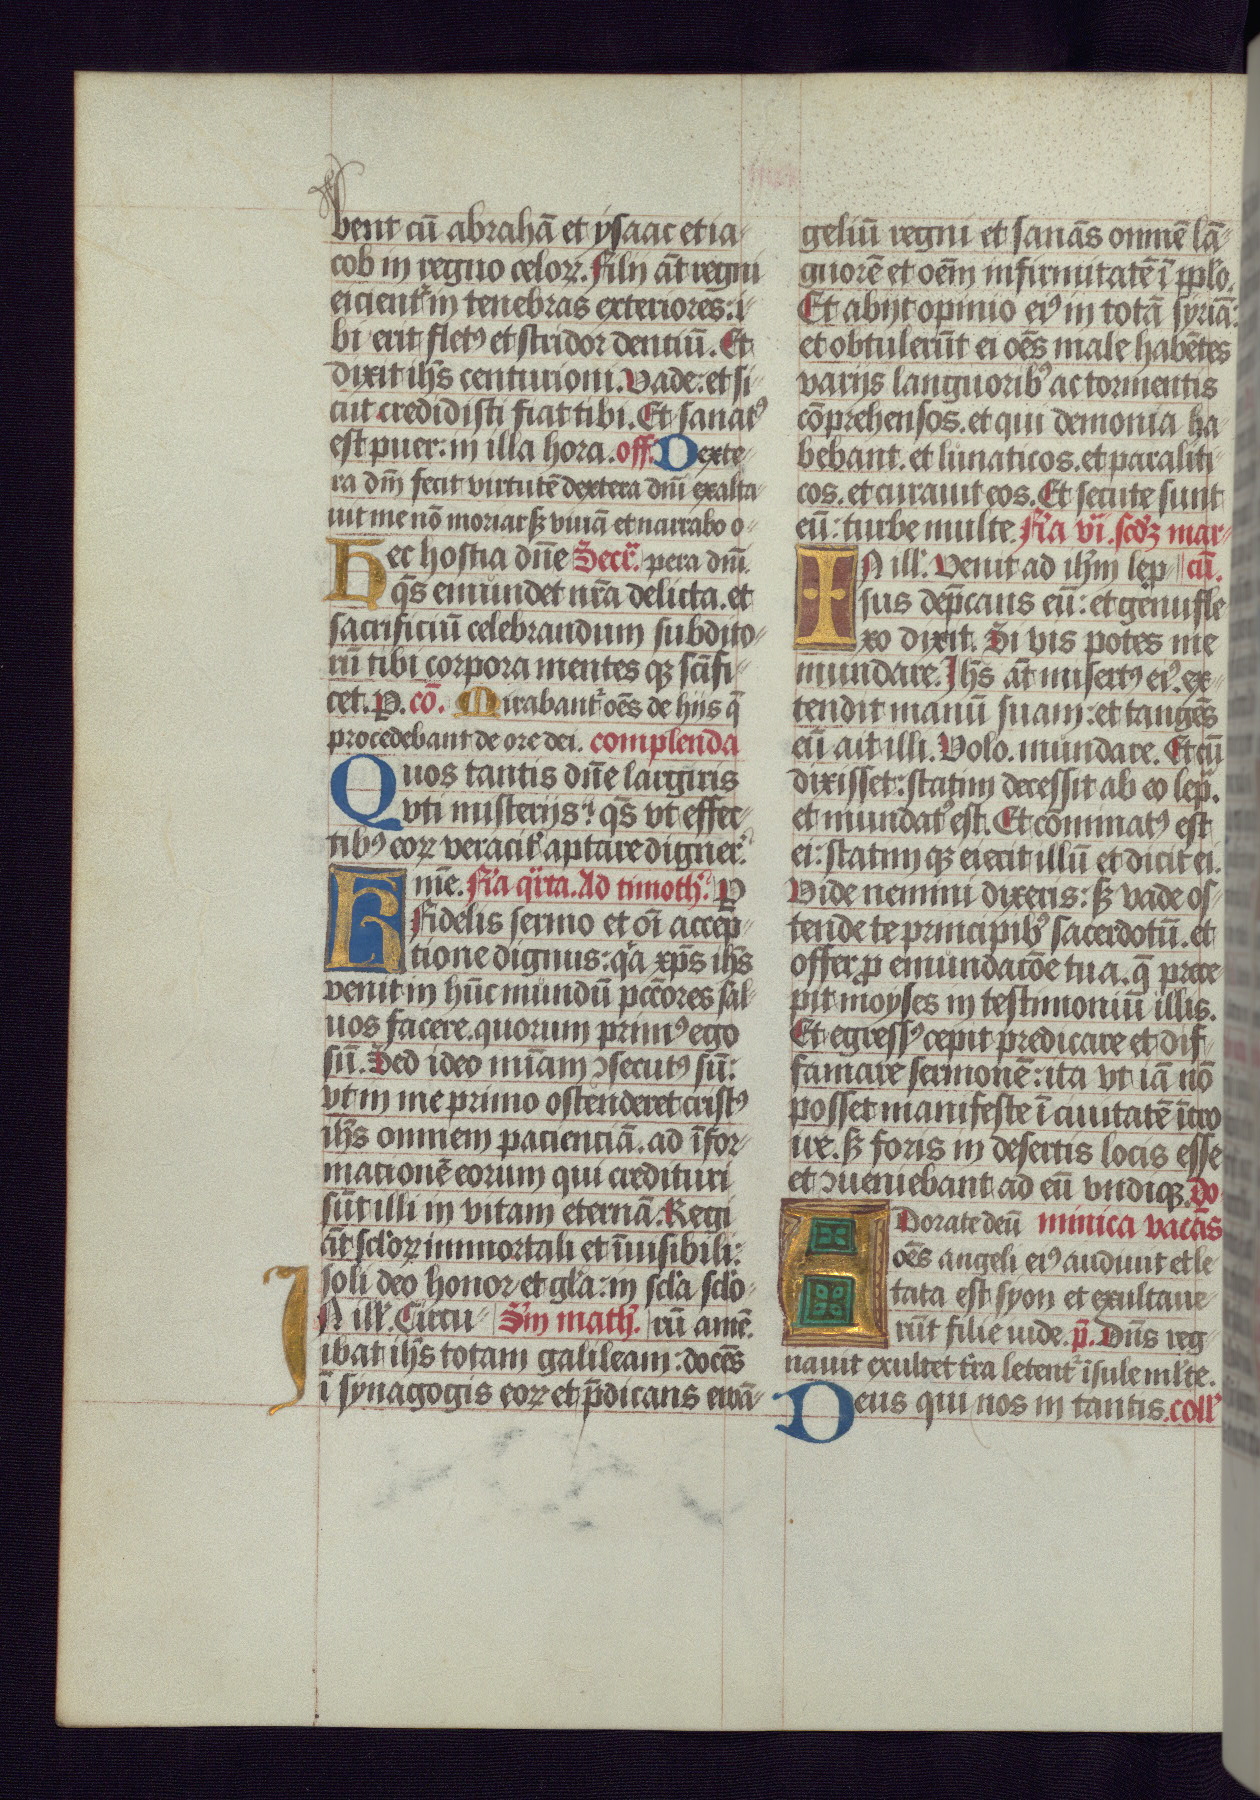 bent cū abrahā et ysaac et ia-
cob in regno celoꝝ. Filii āt regni
eicient᷑ in tenebras exteriores: i-
bi erit flet⁹ et stridor dentiū. Et
dixit ih̄s centurioni. Vade: et si-
cut credidisti fiat tibi. Et sanat⁹
est puer: in illa hora. off. Dexte-
ra dn̄i fecit virtutē dextera dn̄i exalta-
uit me nō moriar sꝫ viuā et narrabo o-
Hec hostia dn̄e Secr̄. pera dn̄i.
q̄s emundet nr̄a delicta. et
sacrificiū celebrandum subdito-
rū tibi corpora mentes qꝫ sc̄ifi-
cet. P. cō. Mirabant᷑ oēs de hijs q̄
procedebant de ore dei. complenda
Quos tantis dn̄e largiris
vti misterijs: q̄s vt effec-
tib⁹ eoꝝ veracit᷑ aptare digner᷑.
Fr̄e. Fr̄a qr̄ta. Ad timoth̄. P
Fidelis sermo et oī accep-
tione dignus: q̄a xp̄s ih̄s
venit in hūc mundū pctōres sal-
uos facere. quorum prim⁹ ego
sū. Sed ideo mīam ꝯsecut⁹ sū:
vt in me primo ostenderet crist⁹
ih̄s omnem pacienciā. ad īfor-
mationē eorum qui credituri
sūt illi in vitam eternā. Regi
āt sc̄loꝝ immortali et īuisibili:
soli deo honor et gl̄a: in sc̄la sc̄lo-
IN ill̄. Circu- Sm̄ math̄. rū amē.
ibat ih̄s totam galileam: docēs
ī synagogis eoꝝ et p̄dicans ewā-
geliū regni et sanās omnē lā-
guorē et oēm infirmitatē ī pp̄lo.
Et abijt opinio ei⁹ in totā syriā:
et obtulerūt ei oēs male habētes
varijs languorib⁹ ac tormentis
cōprehensos. et qui demonia ha-
bebant. et lunaticos. et paraliti-
cos. et curauit eos. Et secute sunt
eū: turbe multe. Fr̄a vi. scd̄ꝫ mar-
IN ill̄. Venit ad ih̄m lep- cū.
sus dep̄cans eū: et genufle
xo dixit. Si vis potes me
mundare. Ih̄s āt misert⁹ ei⁹. ex-
tendit manū suam: et tangēs
eū ait illi. Volo. mundare. Et cū
dixisset: statim decessit ab eo lep̄.
et mundat⁹ est. Et cōminat⁹ est
ei: statim qꝫ eiecit illū et dicit ei.
Vide nemini dixeris: sꝫ vade os-
tende te principib⁹ sacerdotū. et
offer ꝓ emundacōe tua. q̄ prece-
pit moyses in testimoniū illis.
Et egress⁹ cepit predicare et dif-
famare sermonē: ita vt iā nō
posset manifeste ī ciuitatē ītro
ire. sꝫ foris in desertis locis esse
et ꝯueniebant ad eū vndiqꝫ. Do
Adorate deū minica vacās
oēs angeli ei⁹ audiuit et le-
tata est syon et exultaue-
rūt filie iude. p̄. Dn̄s reg-
nauit exultet tr̄a letent᷑ īsule ml̄te.
Deus qui nos in tantis. coll̄